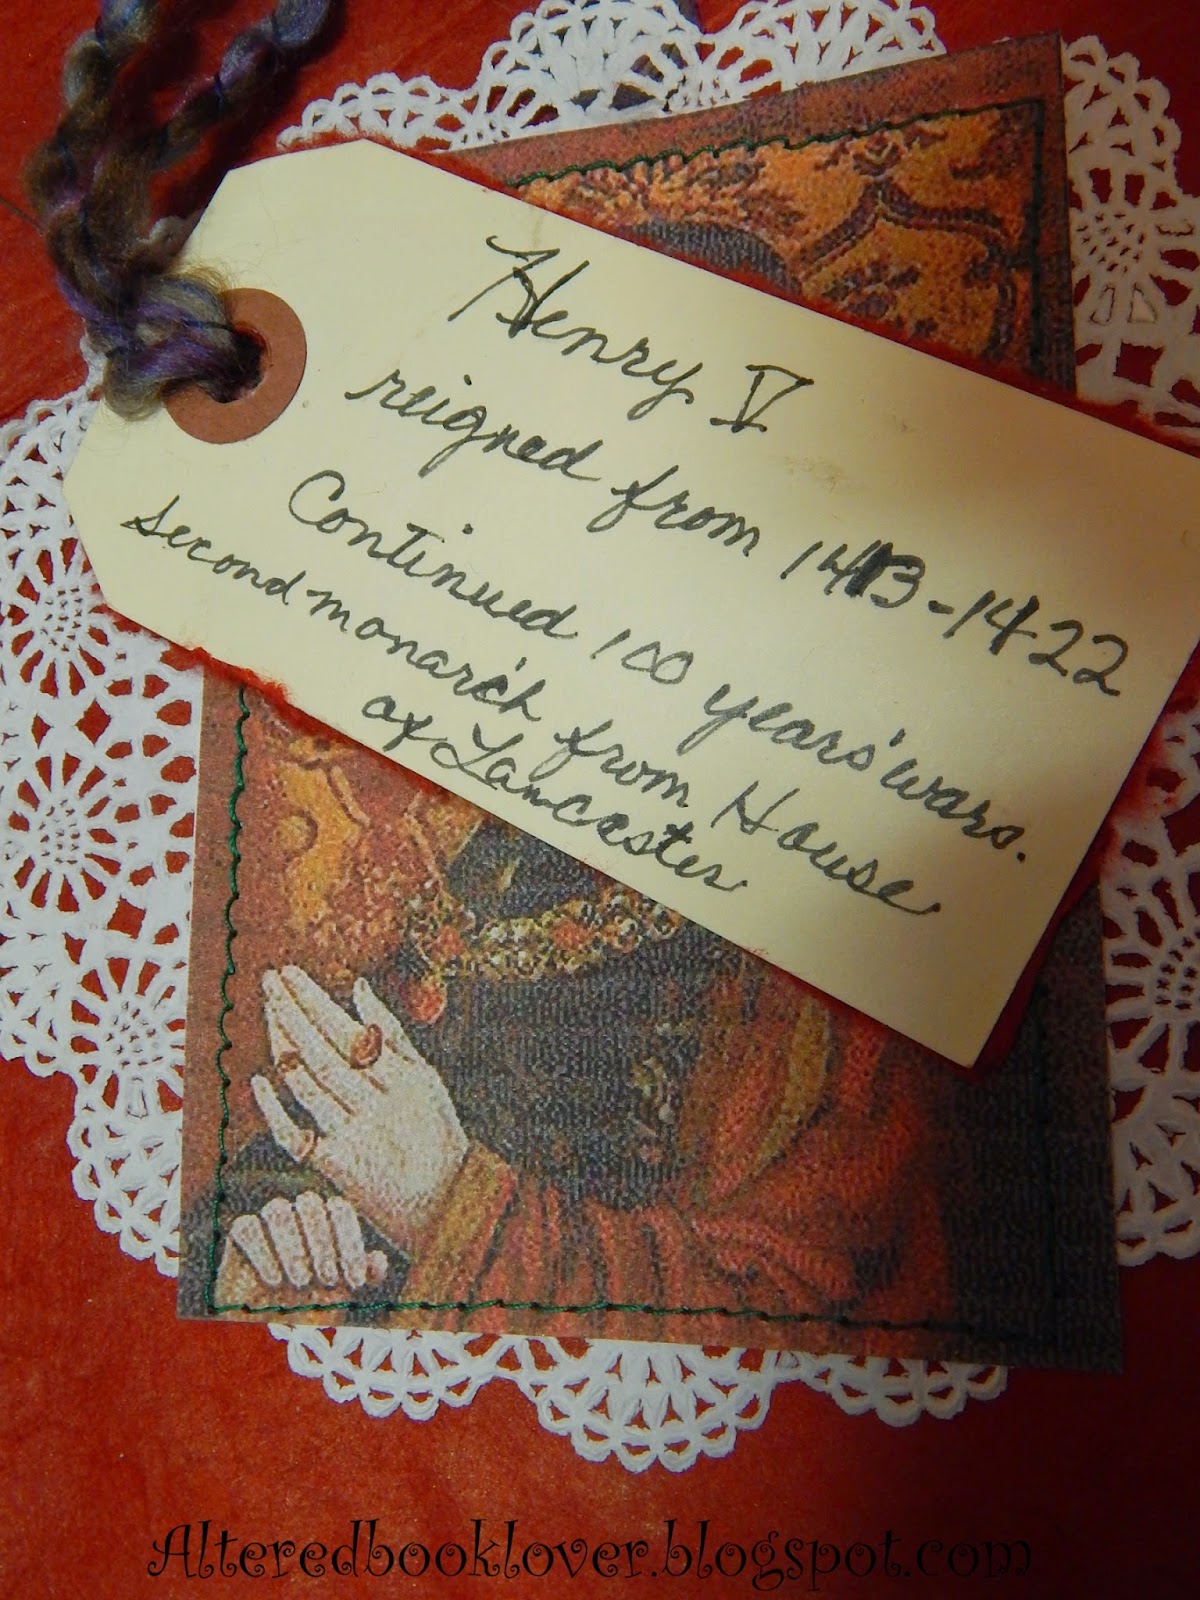 Henry V
reigned from 1413-1422
Continued 100 years' wars.
second monarch from House
of Lancaster
Alteredbooklover.blogspot.com